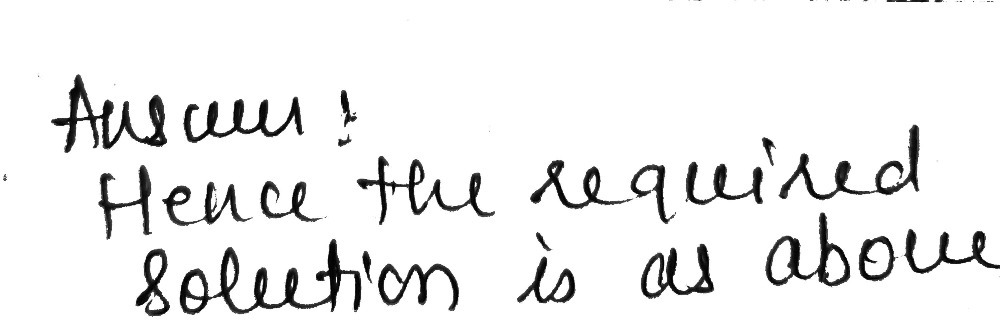 Answer :
Hence the required
solution is as above